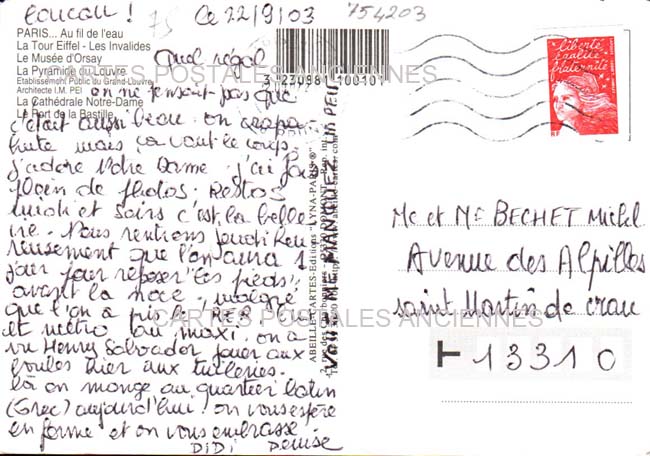 coucou !
75
Ce 22/9/03
754203
PARIS... Au fil de l'eau
La Tour Eiffel - Les Invalides
Le Musée d'Orsay
La Pyramide du Louvre
Etablissement Public du Grand-Louvre
Architecte I.M. PEI
La Cathédrale Notre-Dame
Le Port de la Bastille
CARTES POSTALES ANCIENNES
3230881100101
Quel régal
on ne pensait pas que
c'était aussi beau. on crapa-
hute mais ça vaut le coup.
j'adore Notre Dame. j'ai fais
plein de photos. Restos
midi et soirs c'est la belle
vie. Nous rentrons jeudi heu
reusement que l'on aura 1
jour pour reposer les pieds,
avant la noce, malgré
que l'on a pris le RER
et métro au maxi. on a
vu Henry Salvador jouer aux
boules hier aux tuileries.
là on mange au quartier latin
(Grec) aujourd'hui. on vous espère
en forme et on vous embrasse
DiDi Denise
VOUS ME MANQUEZ UN PEU
ABEILLE-CARTES-Editions "LYNA-PARIS"®
liberté
égalité
fraternité
RF
Me et Mr BECHET Michel
Avenue des Alpilles
saint Martin de crau
13310
CARTES POSTALES ANCIENNES